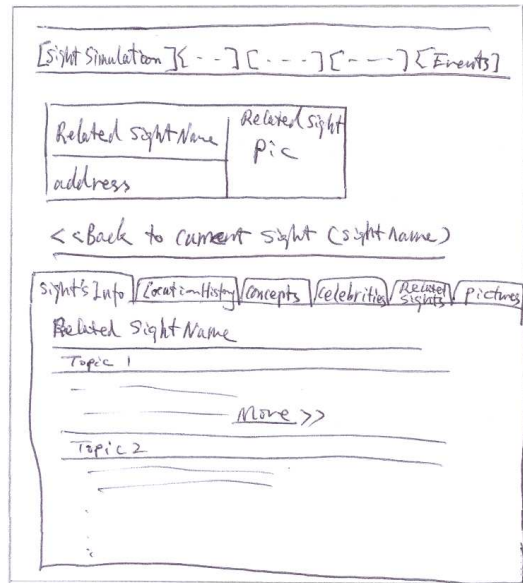 [Sight Simulation] [--] [---] [---] [Events]
Related Sight Name
Related Sight
Pic
address
<<Back to current Sight (sight name)
Sight's Info
Location History
Concepts
Celebrities
Related
Sights
Pictures
Related Sight Name
Topic 1
More >>
Topic 2